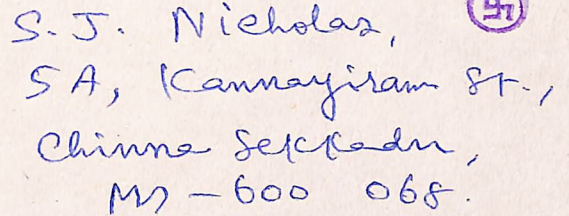 S. J. Nicholas,
5A, Kannayiram St.,
Chinna Sekkadu,
Ms - 600 068.